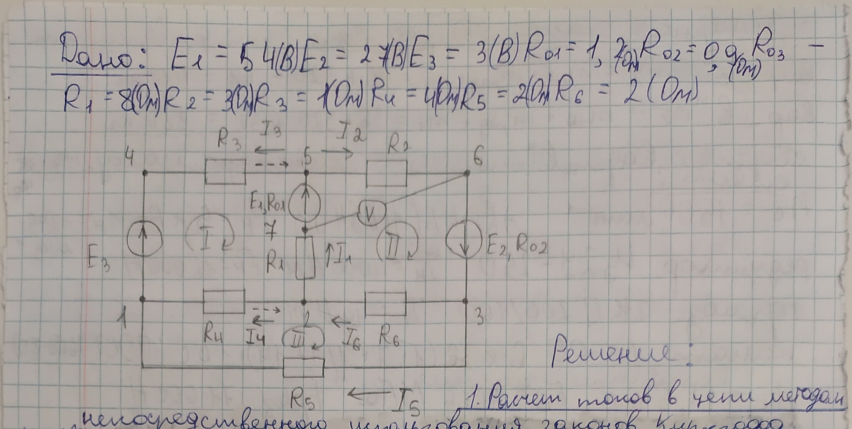 Дано: E1 = 54(В) E2 = 27(В) E3 = 3(В) R01 = 1,2(Ом) R02 = 0,9(Ом) R03 —
R1 = 8(Ом) R2 = 3(Ом) R3 = 1(Ом) R4 = 4(Ом) R5 = 2(Ом) R6 = 2(Ом)
R3 I3 I2 R2
4 5 6
E1,R01 V
7
I II
E3 R1 I1 E2,R02
1 2 3
R4 I4 III I6 R6
Решение:
R5 I5
1. Расчет токов в цепи методом
непосредственного использования законов Кирхгофа